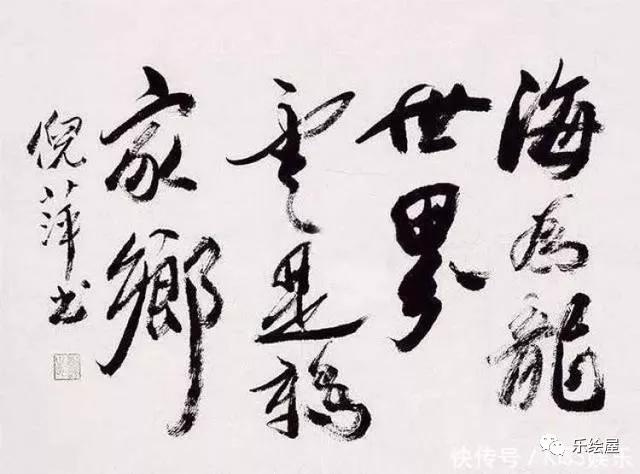 海為龍
世界
雲是鶴
家鄉
倪萍书
快传号
乐绘屋